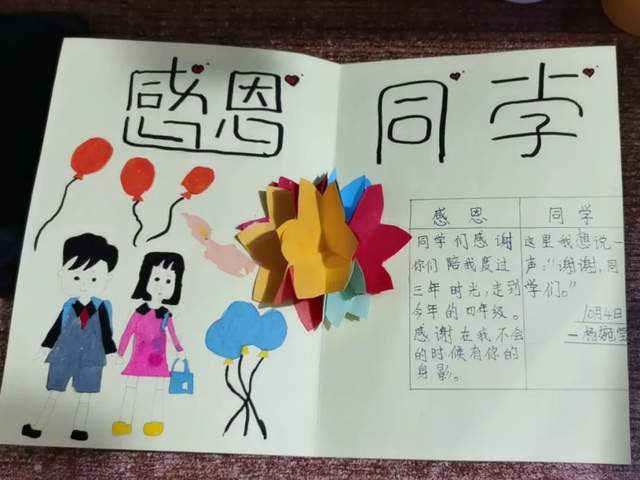 感恩
同学
感恩
同学们感谢
你们陪我度过
三年时光,走到
今年的四年级。
感谢在我不会
的时候有你的
身影。
同学
这里我想说一
声:“谢谢,同
学们。”
10月4日